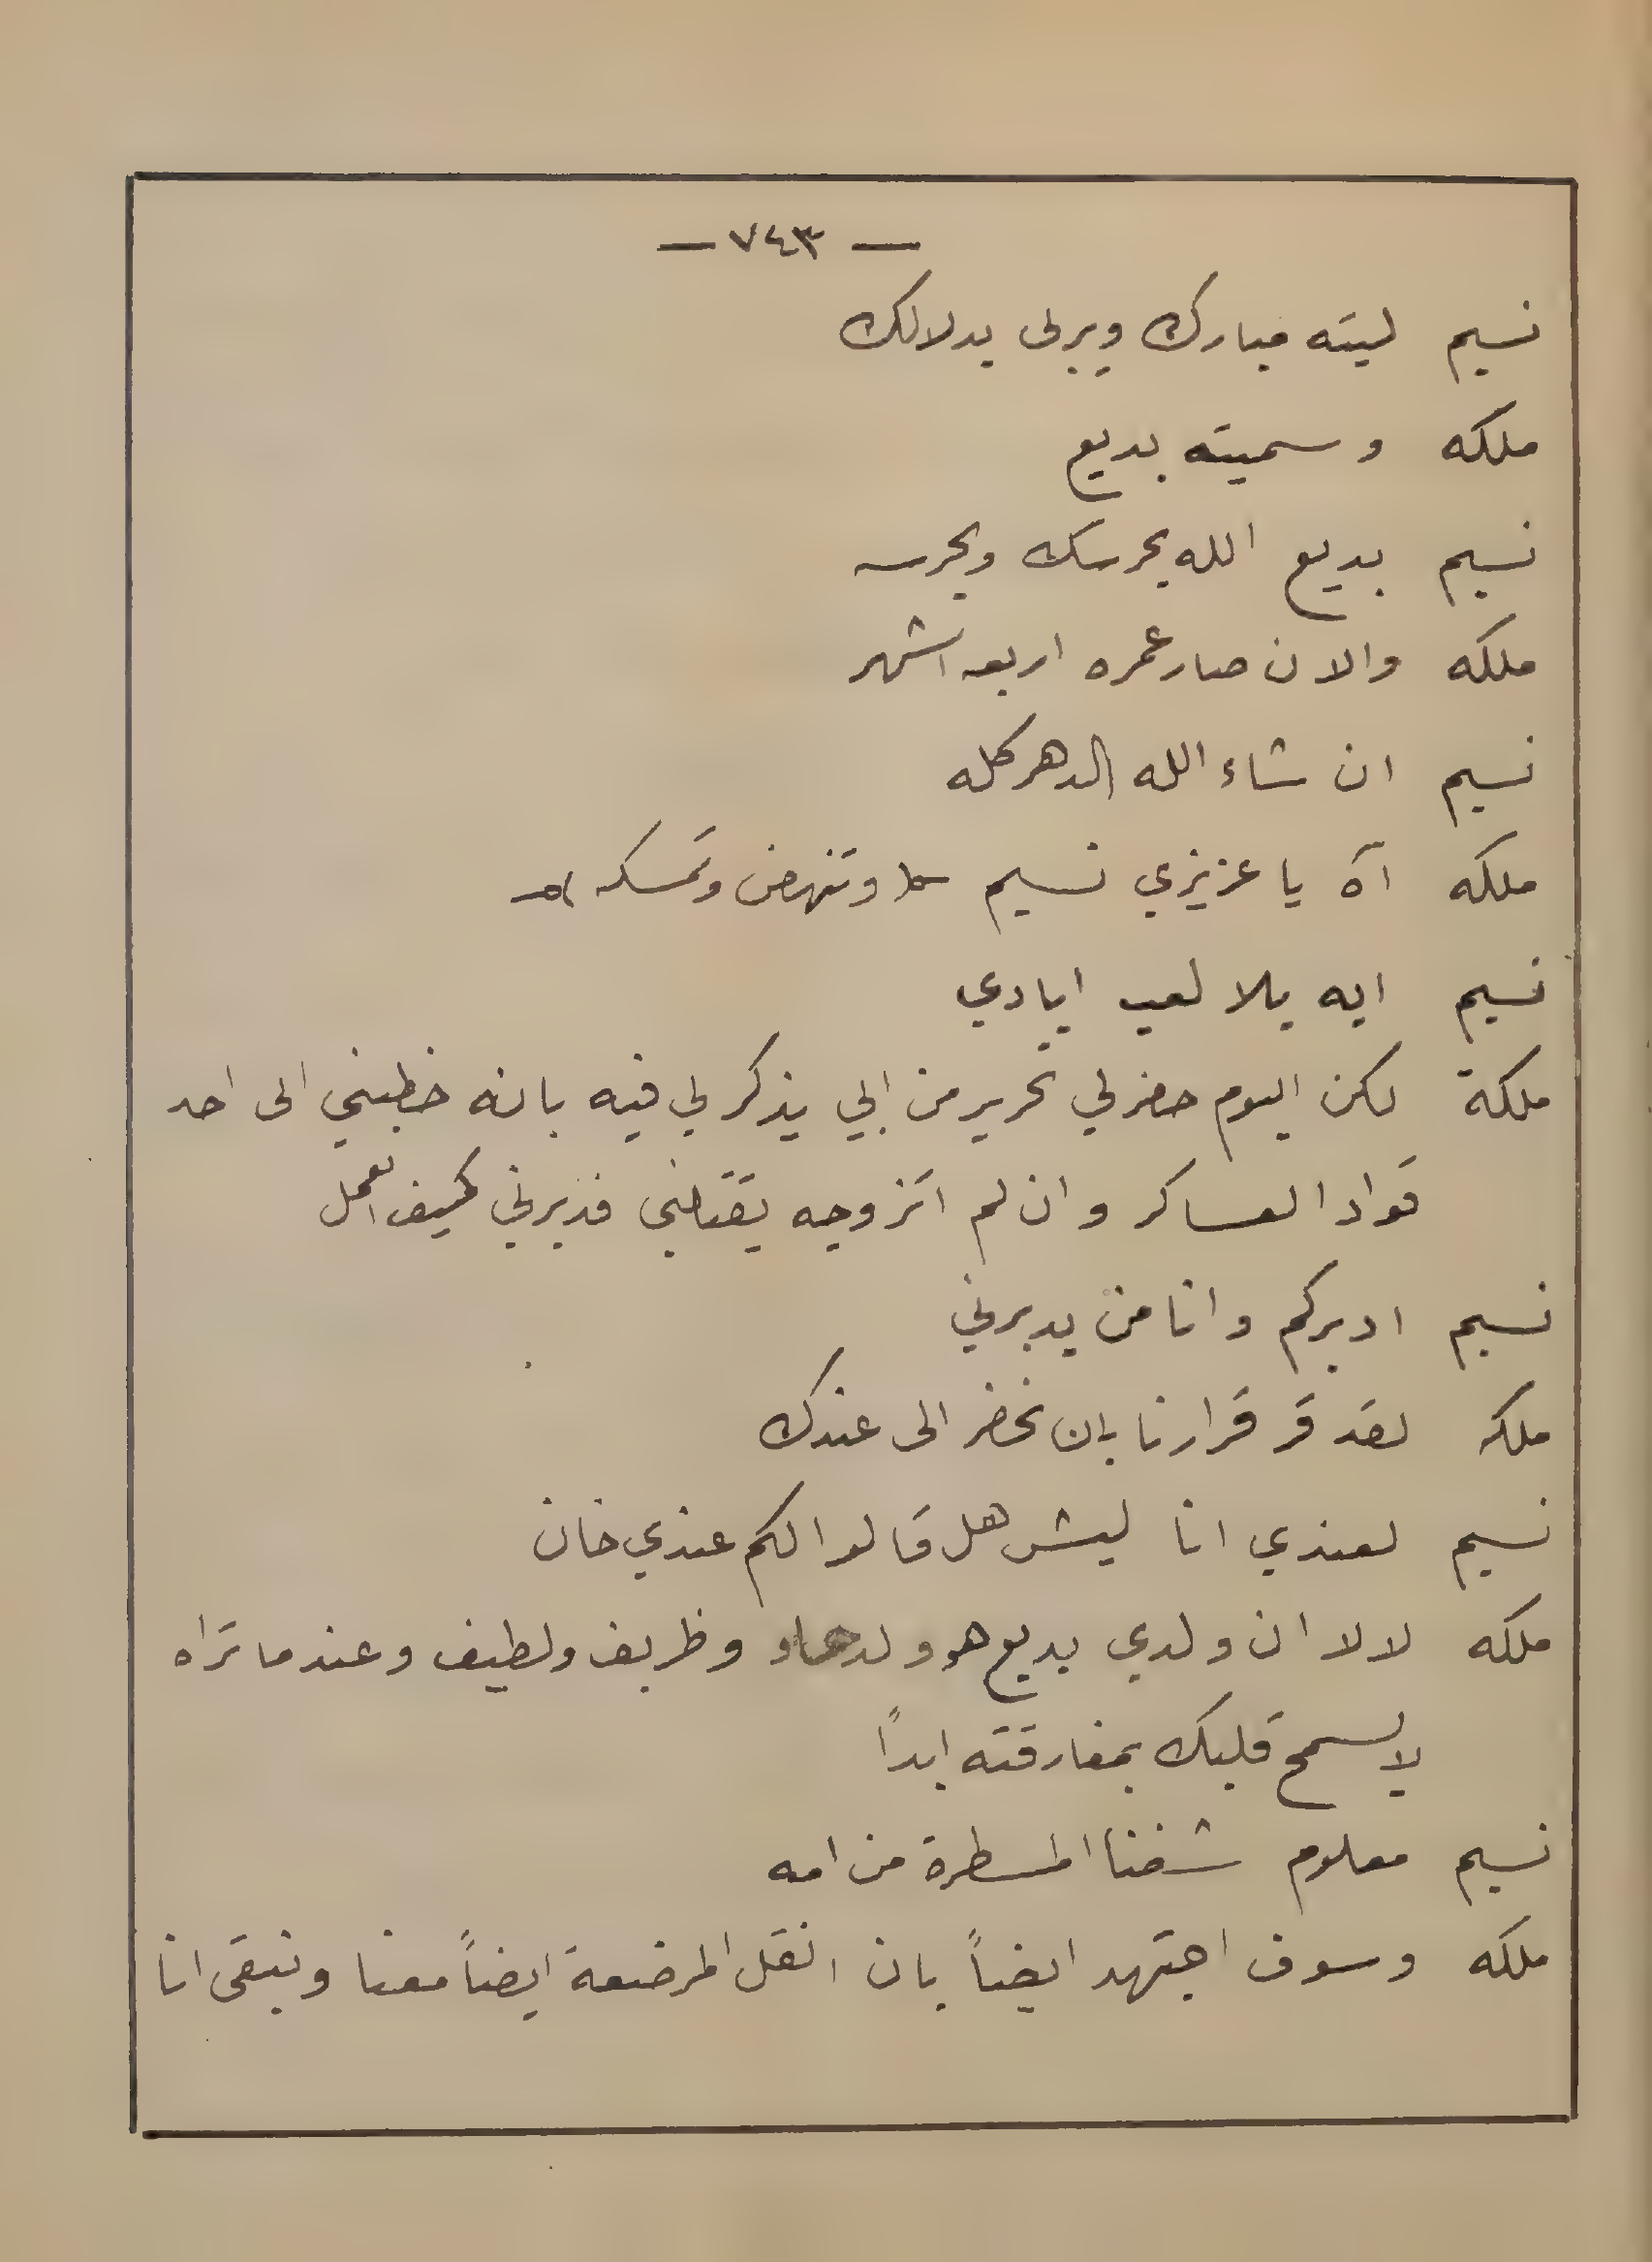 — ٧٤٣ —
نسيم ليته مبارك ويربى بدلالك
ملكه وسميته بديع
نسيم بديع الله يحرسك ويحرسه
ملكه والان صار عمره اربعه اشهر
نسيم ان شاء الله الدهر كله
ملكه آه يا عزيزي نسيم (وتنهض وتمسكه)
نسيم ايه بلا لعب ايادي
ملكة لكن اليوم حضر لي تحرير من ابي يذكر لي فيه بانه خطبني الى احد
قواد العساكر وان لم اتزوجه يقتلني فدبرني كيف اعمل
نسيم ادبركم وانا من يدبرني
ملكه لقد قر قرارنا بان نحضر الى عندك
نسيم لعندي انا ليش هل قالوا لكم عندي خان
ملكه لا لا ان ولدي بديع هو ولد وظريف ولطيف وعندما تراه
لا يسمح قلبك بمفارقته ابداً
نسيم معلوم شفنا المسطرة من امه
ملكه وسوف اجتهد ايضاً بان انقل المرضعة ايضاً معنا ونبقى انا